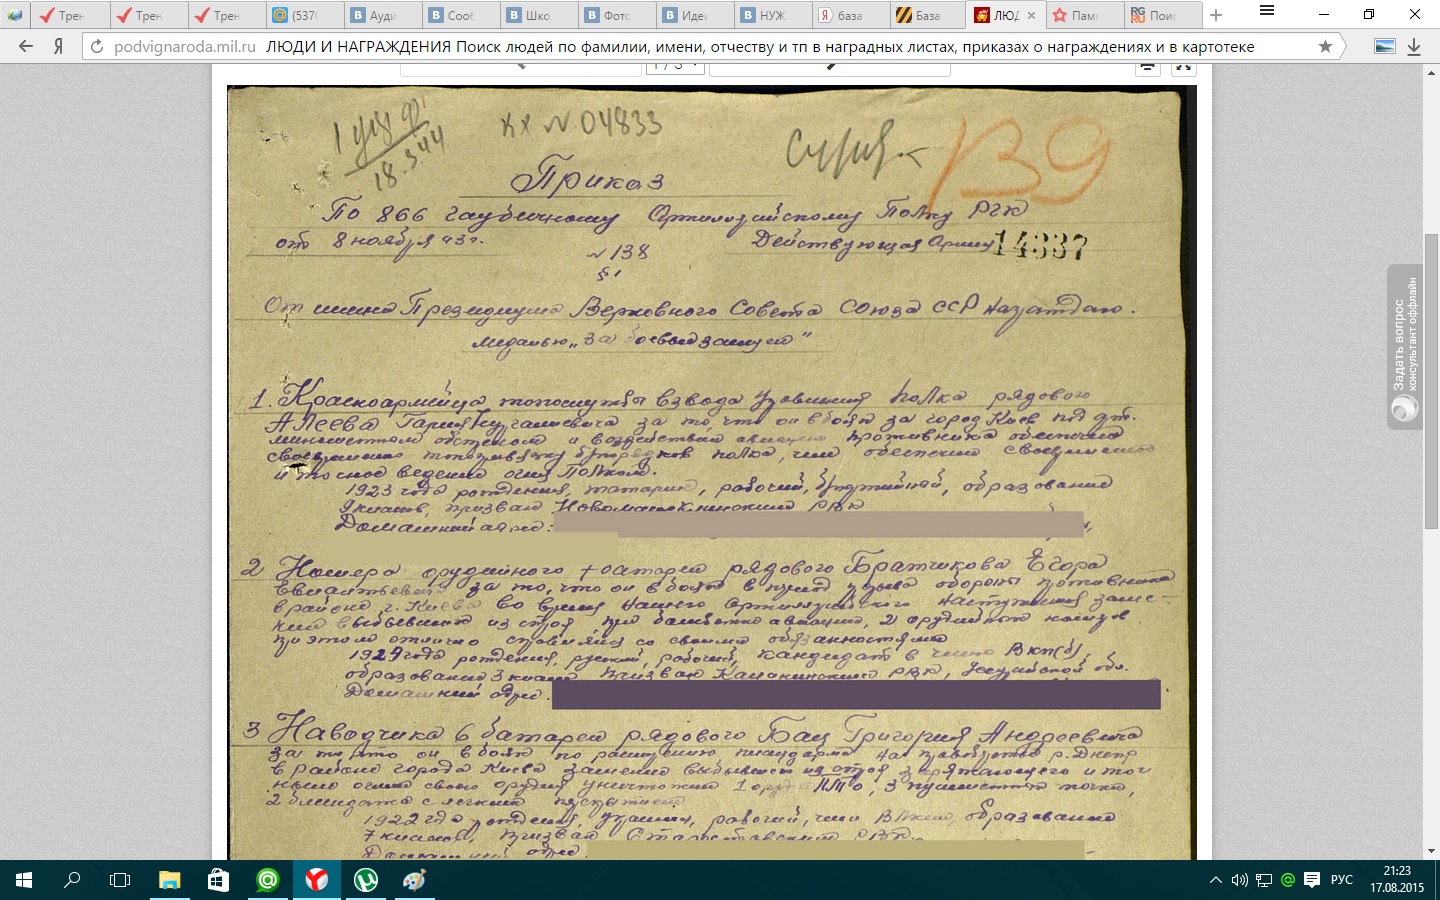 Трен
Трен
Трен
(537(
Ауди
Сооб
Шко.
Фото
Идеи
НУЖ
база
База
ЛЮД
Пам
Поис
podvignaroda.mil.ru ЛЮДИ И НАГРАЖДЕНИЯ Поиск людей по фамилии, имени, отчеству и тп в наградных листах, приказах о награждениях и в картотеке
1 / 3
18.344
№ 04833
В9
Приказ
По 866 гаубичному Артиллерийскому Полку РГК
от 8 ноября 43 г.
Действующая Армия
14337
№ 138
§ 1
От имени Президиума Верховного Совета Союза ССР награждаю.
медалью „За боевые заслуги"
1. Красноармейца топослужбы взвода управления полка рядового
АЛЕЕВА за то, что он в боях за город Киев
и воздействии авиации противника обеспечил
своевременно топопривязку боепорядков полка, чем обеспечил своевременное
и точное ведение огня Полком.
1923 года рождения, татарин, рабочий, беспартийный, образование
призван РВК
Домашний адрес:
2 Номера орудийного батареи рядового Братчикова Егора
за то, что он в боях в период прорыва обороны противника
в районе г. Киева во время нашего Артиллерийского наступления заме-
нил выбывших из строя при бомбежке авиации, 2 орудийных номеров
при этом отлично справляясь со своими обязанностями
1924 года рождения, русский, рабочий, кандидат в члены ВКП(б),
образование 3 класса, Призван РВК, обл.
Домашний адрес:
3 Наводчика 6 батареи рядового Бац Григория Андреевича
за то, что он в боях по расширению плацдарма на правом берегу р. Днепр
в районе города Киева заменил выбывшего из строя заряжающего и точ
ным огнем своего орудия уничтожил 1 орудие ПТО, 3 пулеметных точки,
2 блиндажа с легким перекрытием
1922 года рождения, украинец, рабочий, член ВЛКСМ, образование
7 классов, призван РВК.
Домашний адрес
Задать вопрос
консультант офлайн
РУС
21:23
17.08.2015